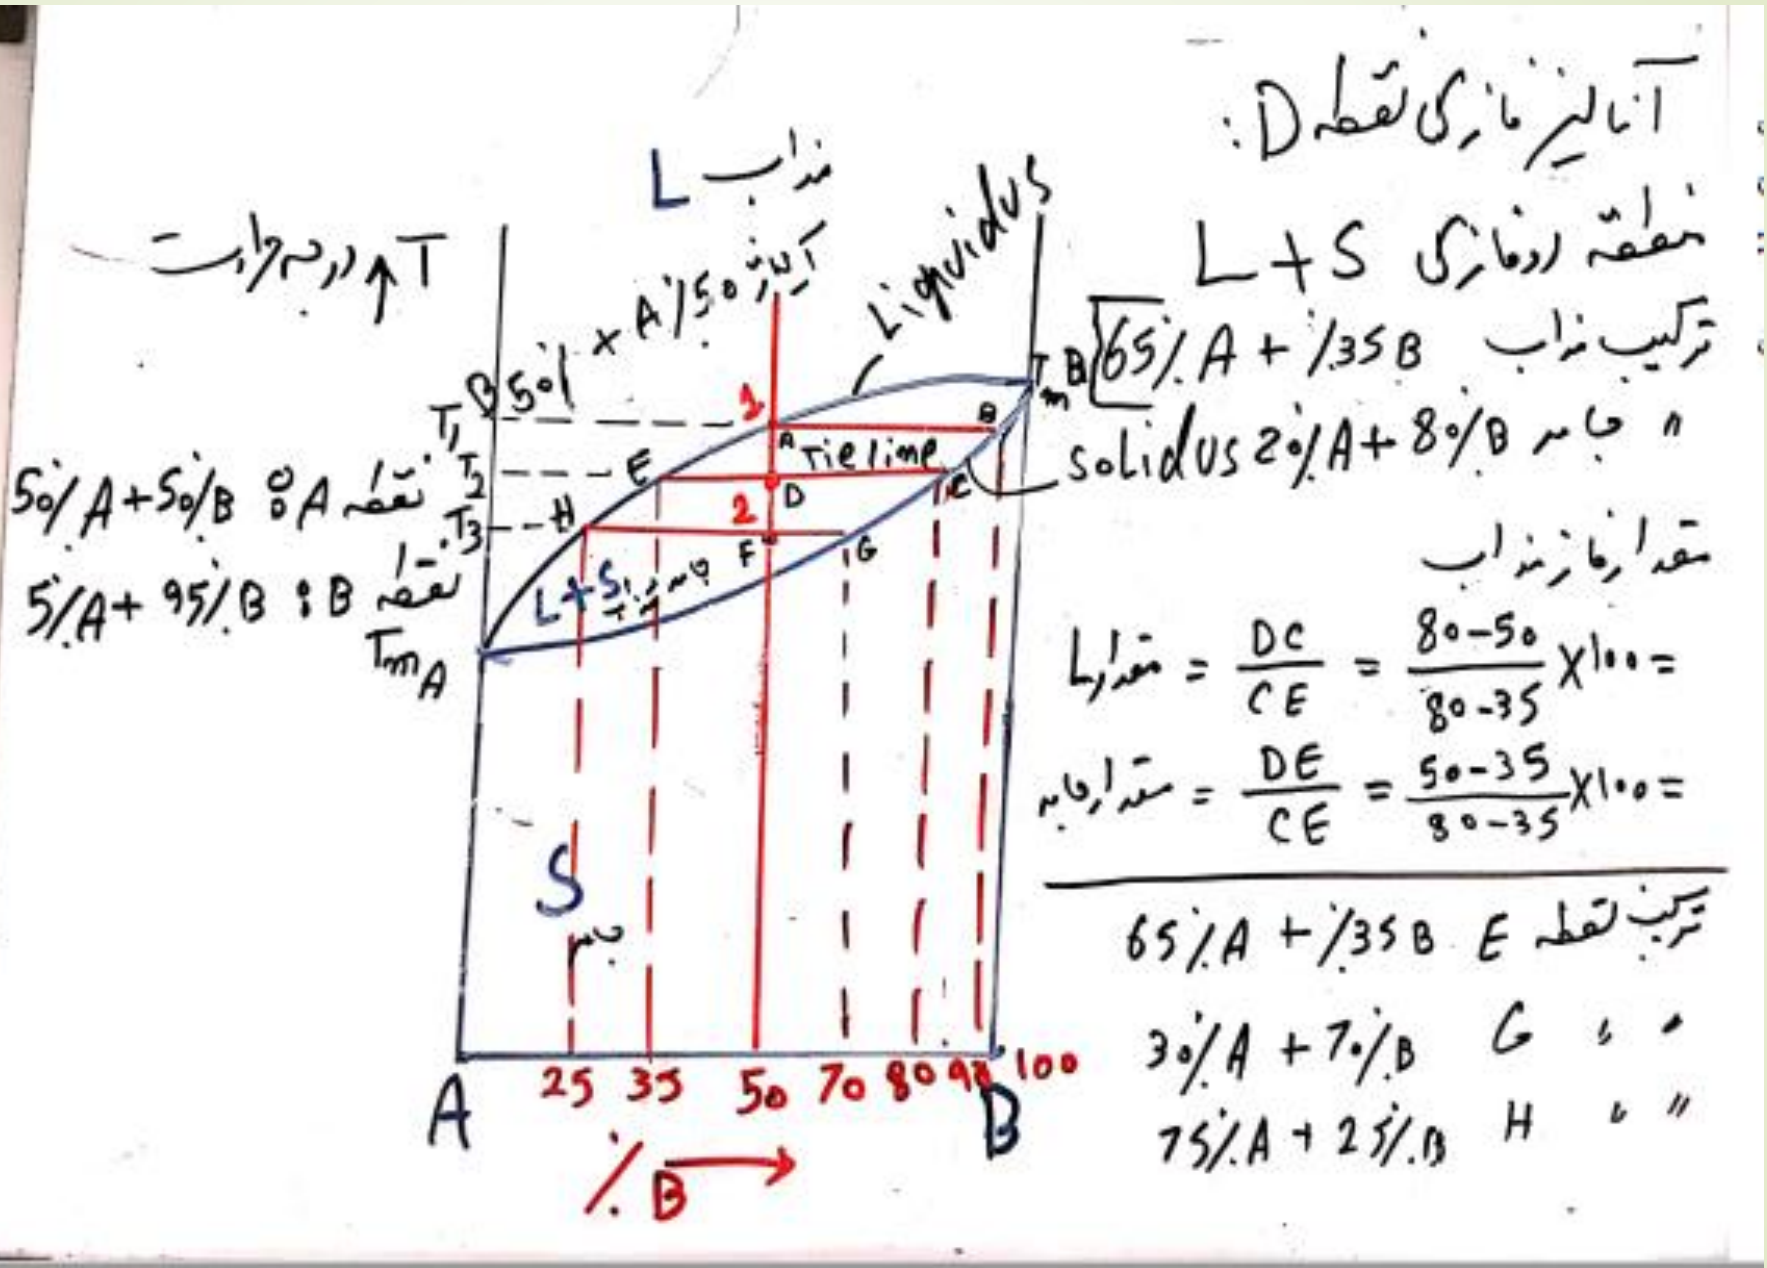 آنالیز فازی نقطه D:
منطقه دوفازی L + S
ترکیب مذاب 65% A + %35 B
〃 جامد 20% A + 80% B
مقدار فاز مذاب
مقدار L = DC / CE = 80-50 / 80-35 ×100 =
مقدار جامد = DE / CE = 50-35 / 80-35 ×100 =
ترکیب نقطه E 65% A + %35 B
〃 〃 G 30% A + 70% B
〃 〃 H 75% A + 25% B
مذاب L
T درجه حرارت
آلیاژ 50% A × 50% B
Liquidus
solidus
T1
T2
T3
TmA
TmB
1
A
B
Tie line
E
D
C
2
H
F
G
L + S
جامد
نقطه A : 50% A + 50% B
نقطه B : 5% A + 95% B
S
جامد
25 35 50 70 80 100
A
B
% B